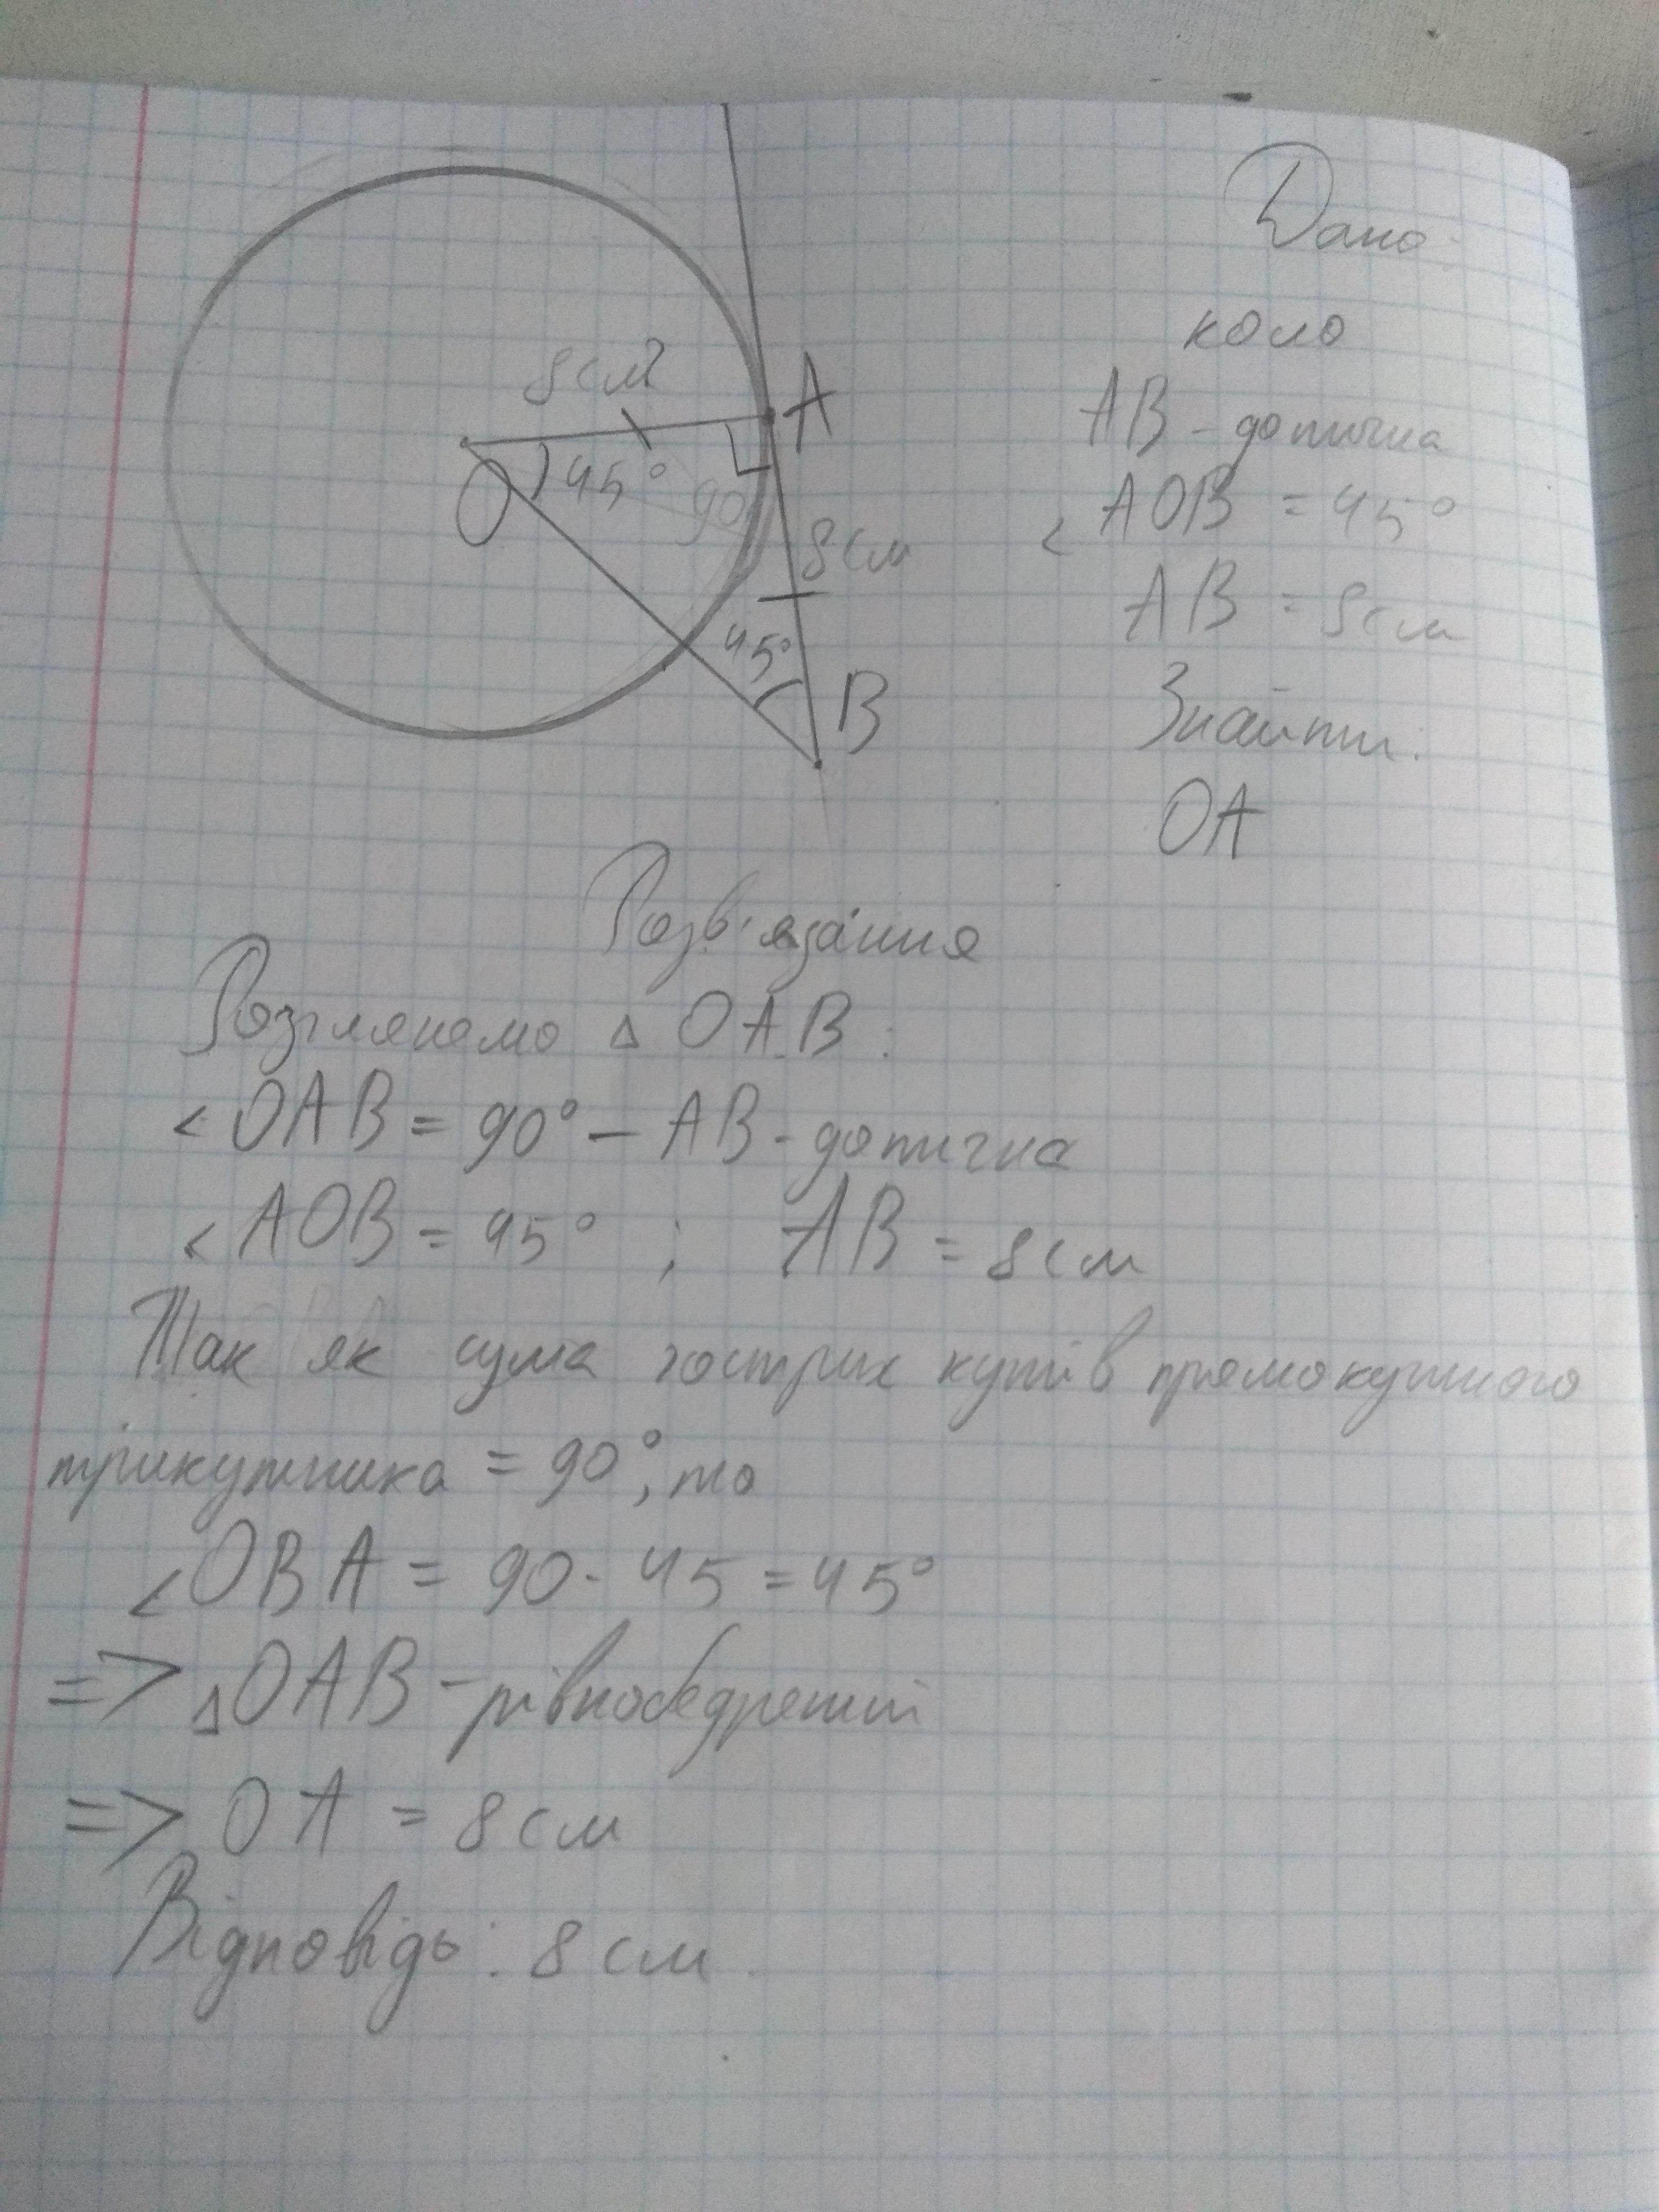 Дано:
коло
AB - дотична
< AOB = 45°
AB = 8см
Знайти:
OA
8см?
A
O
45°
90
8см
45°
B
Розв'язання
Розглянемо △ OAB:
< OAB = 90° – AB - дотична
< AOB = 45° ; AB = 8см
Так як сума гострих кутів прямокутного
трикутника = 90°, то
< OBA = 90 - 45 = 45°
=> △OAB - рівнобедрений
=> OA = 8см
Відповідь: 8см.